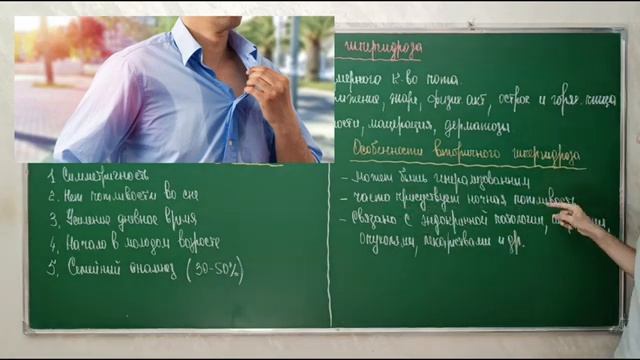 гипергидроза
мерного к-во пота.
жара, физич акт, острое и горяч. пища
мацерация, дерматозы
Особенности вторичного гипергидроза
1. Симметричность
2. Нет потливости во сне
3. Усиление дневное время
4. Начало в молодом возрасте
5. Семейный анамнез (30-50%)
- может быть генерализованным
- часто присутствует ночная потливость
- связано с эндокринной патологией,
опухолями, лекарствами и др.